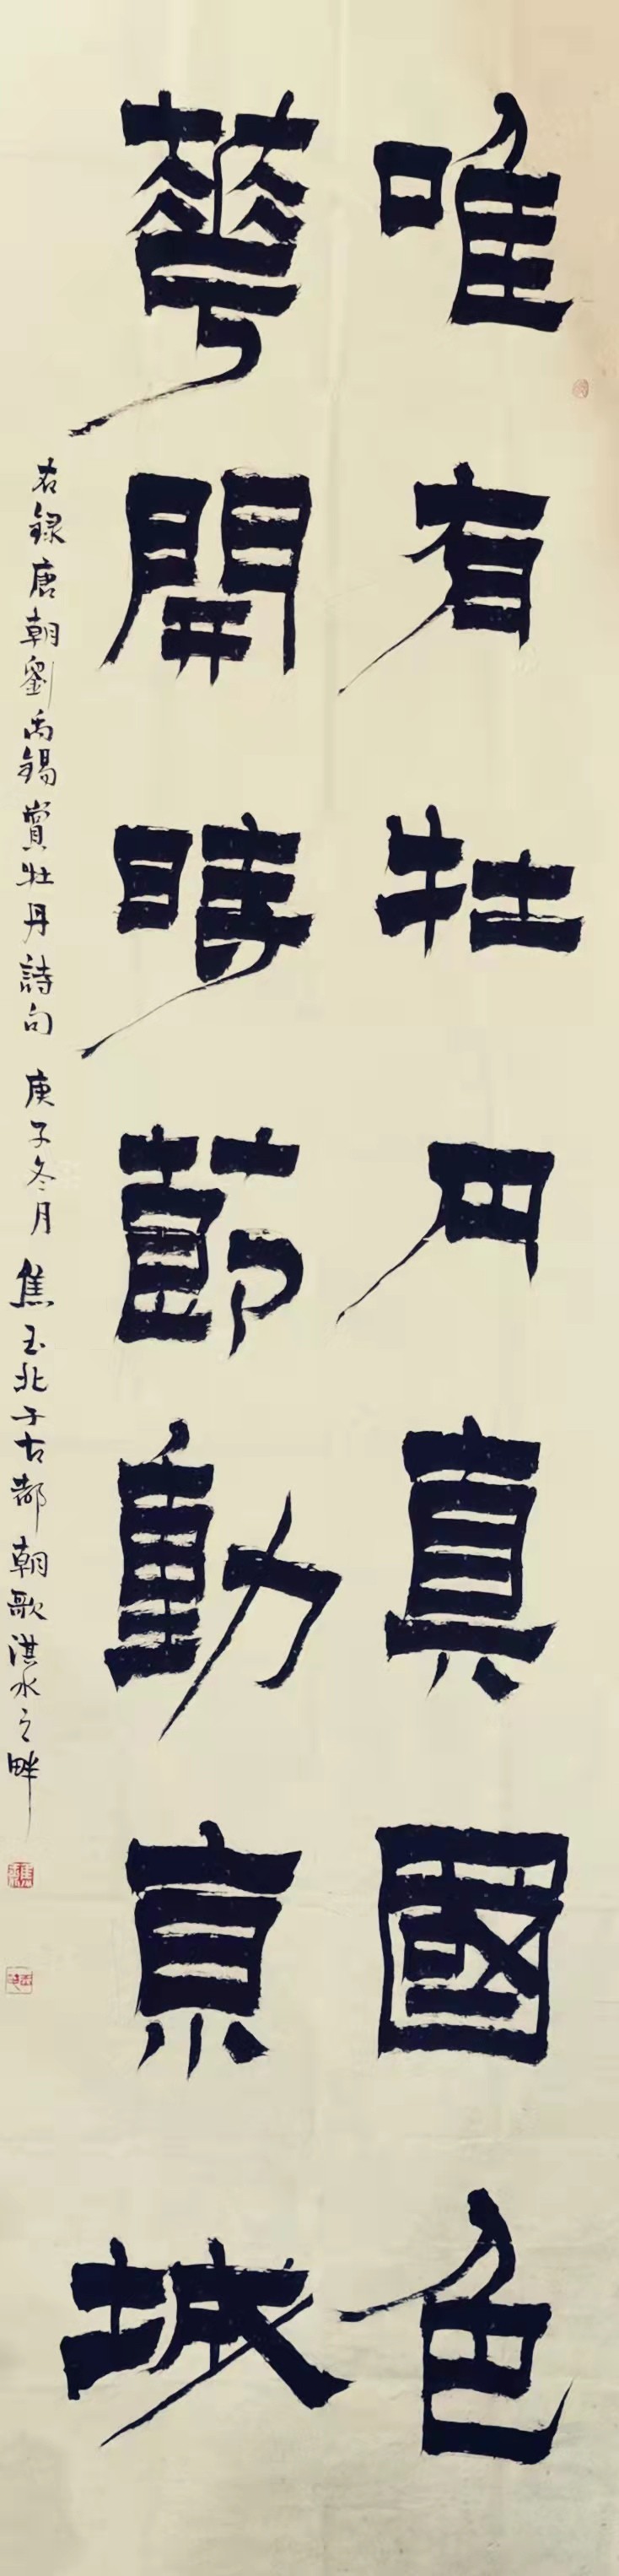 唯有牡丹真國色
華開時節動京城
右録唐朝劉禹錫賞牡丹詩句 庚子冬月 焦玉北于古都朝歌淇水之畔